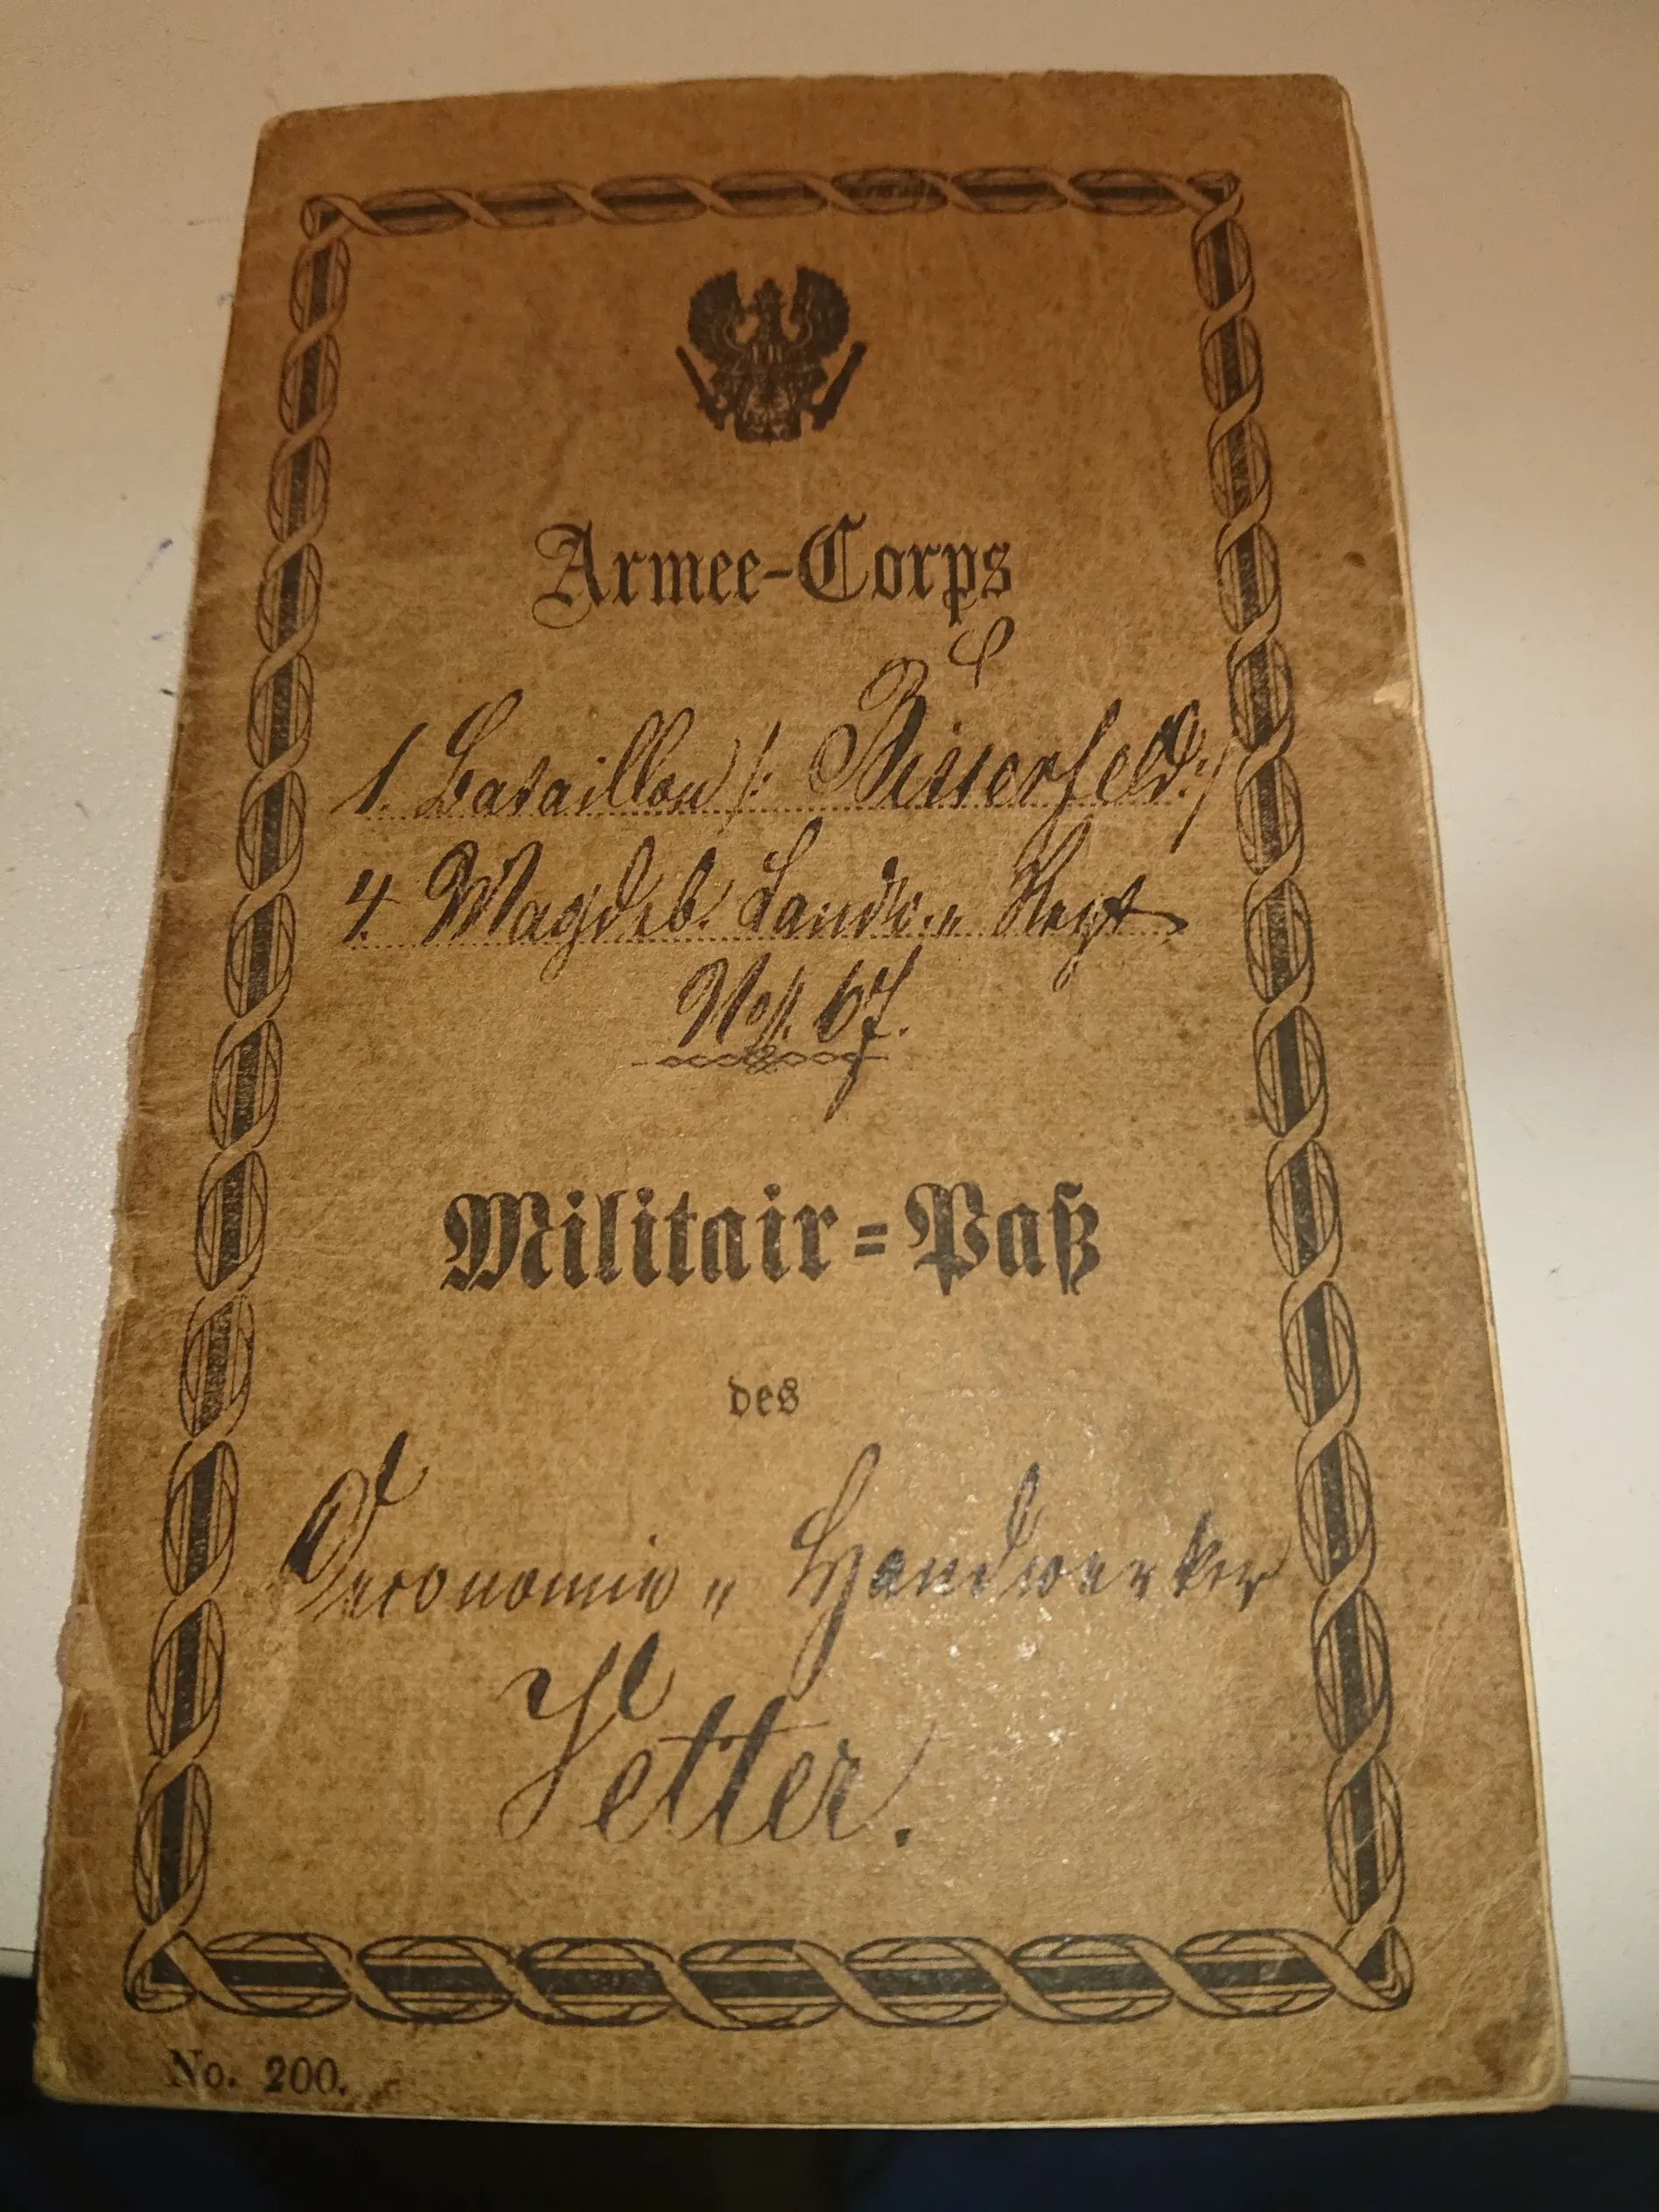 Armee-Corps
1. Bataillon /: Bitterfeld :/
4. Magdeb. Landw.„ Regt
No. 67.
Militair=Paß
des
Oeconomie„ Handwerker
Vetter.
No. 200.